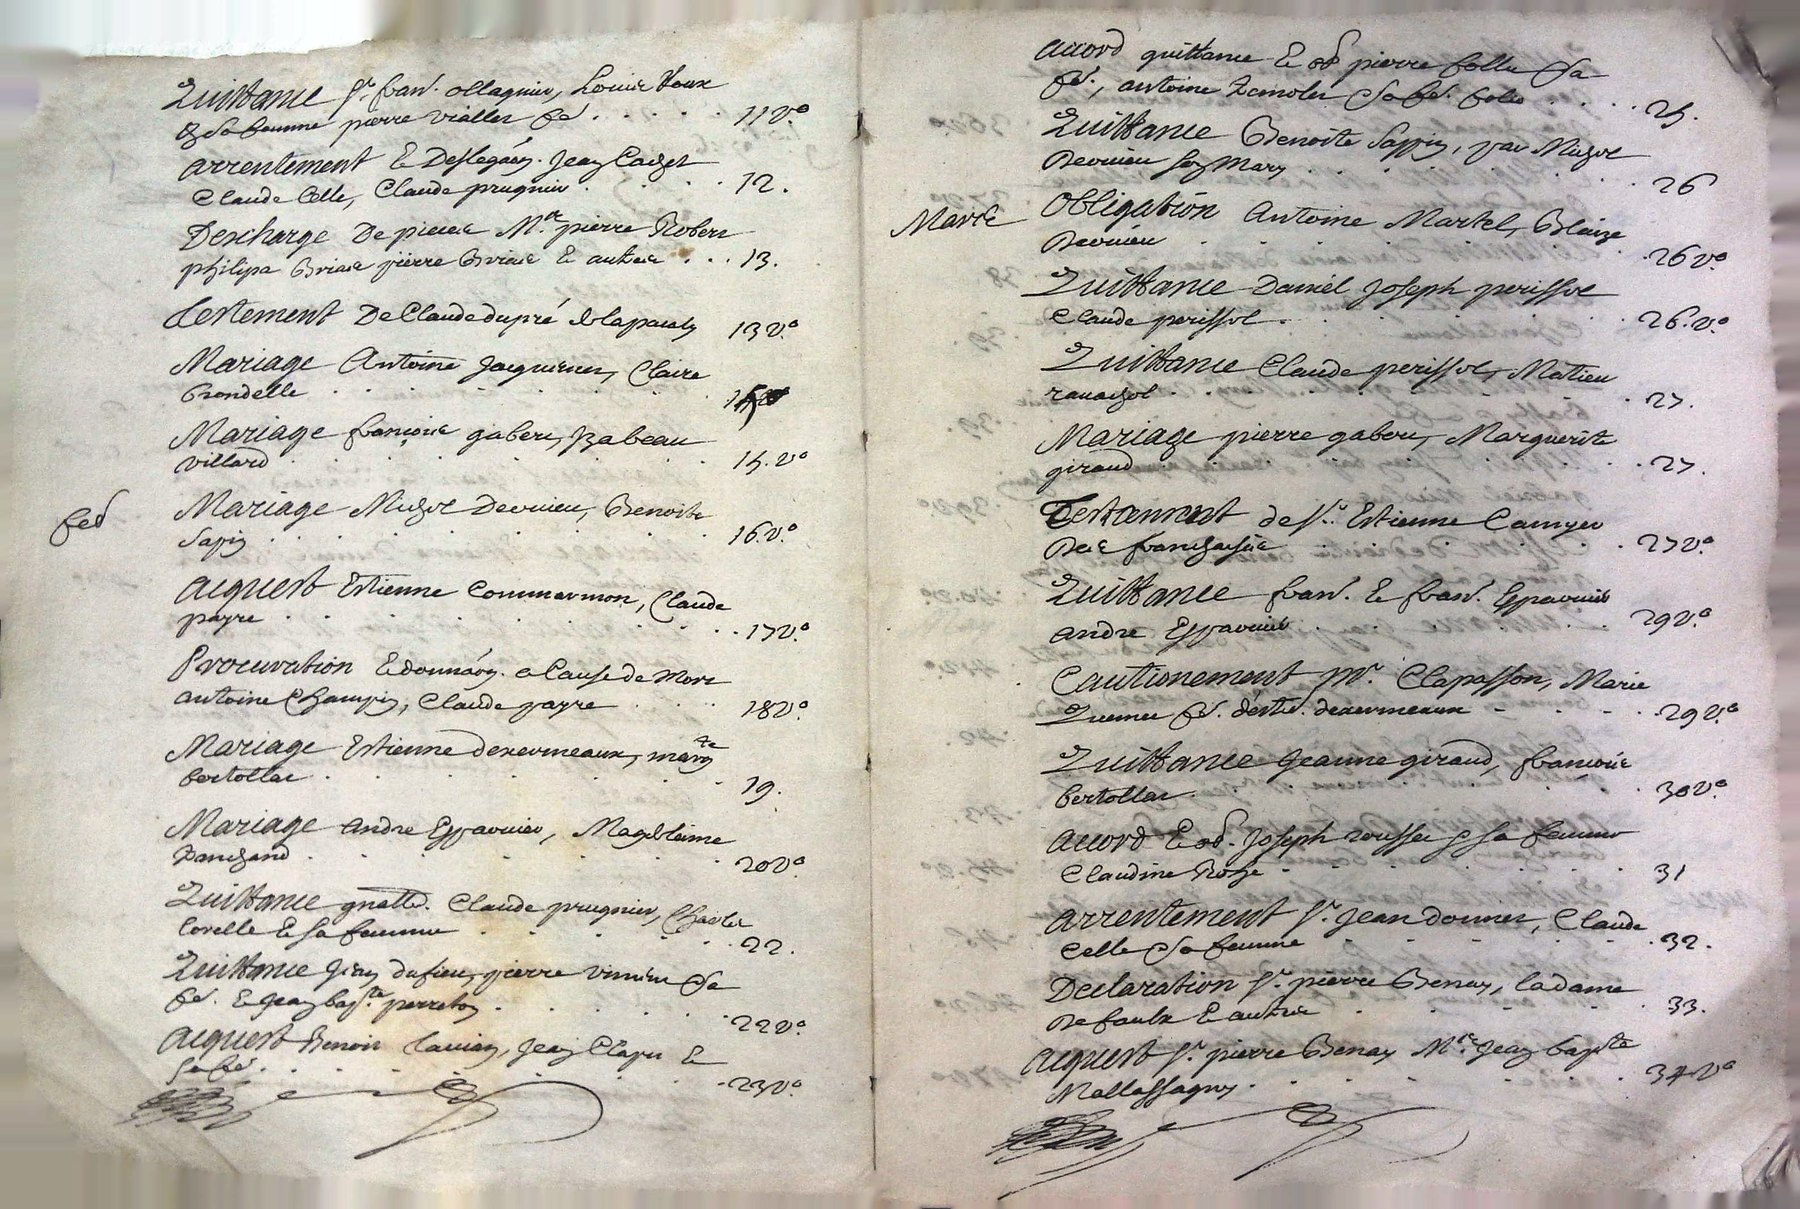 Quittance Sr. fran. ollagnier, Louis Roux
& sa femme pierre viallet fe. 11 v.o
arrentement E Deslegãõn. Jean Cadet
Claude Celle, Claude prugnier 12.
Descharge De pieces Mre. pierre Robert
philipe Briait pierre Briait E autres 13.
Testement De Claude dupré 13 v.o
Mariage Antoine Jacquemet, Claire
Brondelle
Mariage françois gabert, Izabeau
villard 15. v.o
fev
Mariage Michel Dervieu, Benoiste
Sapin 16. v.o
acquest Estienne Commarmon, Claude
payre 17 v.o
Procuration E donnãõn. a Cause de Mort
antoine Champin, Claude payre 18 v.o
Mariage Estienne dexermeaux, margte
bertollat 19.
Mariage andre Esparvier, Magdeleine
20 v.o
Quittance gnalle. Claude prugnier, Charles
Corelle E sa femme 22.
Quittance Jean dufieu, pierre & sa
fe. E Jean bapte. perreton 22 v.o
acquest Benoit Jean Clapit E
sa fe. 23 v.o
accord quittance E obl. pierre folle & sa
fe., antoine & sa fe. 25.
Quittance Benoite Sappin, par Michel
Dervieu son Mary 26
Mars
Obligation Antoine Martel, Blaize
Dervieu 26 v.o
Quittance Daniel Joseph perissol
Claude perissol 26. v.o
Quittance Claude perissol, Matieu
ravachol 27.
Mariage pierre gabert, Marguerite
giraud 27.
Testament de Sr. Estienne
Des 27 v.o
Quittance fran. E fran. Esparvier
andre Esparvier 29 v.o
Cautionement pr. Clapasson, Marie
fe. d'estie. dexermeaux 29 v.o
Quittance Jeanne giraud, françois
bertollat 30 v.o
accord E obl. Joseph rousset & sa femme
Claudine Roze 31
arrentement Sr. Jean donnet, Claude
Celle & sa femme 32.
Declaration Sr. pierre Benay, la dame
De faulx E autres 33.
acquest Sr. pierre Benay Mre. Jean bapte
Mallassagny 34 v.o